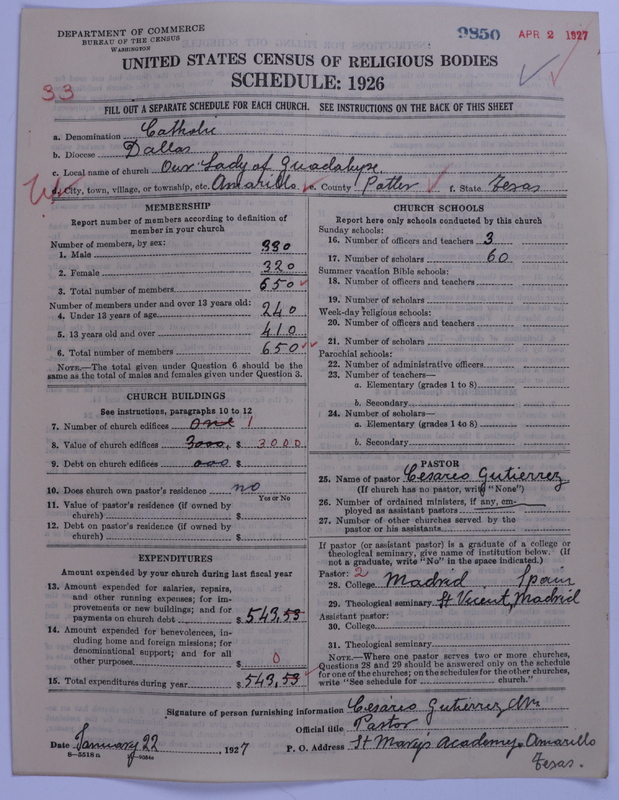 DEPARTMENT OF COMMERCE
BUREAU OF THE CENSUS
WASHINGTON
9850 APR 2 1927
UNITED STATES CENSUS OF RELIGIOUS BODIES
SCHEDULE: 1926
33
FILL OUT A SEPARATE SCHEDULE FOR EACH CHURCH. SEE INSTRUCTIONS ON THE BACK OF THIS SHEET
a. Denomination Catholic
b. Diocese Dallas
c. Local name of church Our Lady of Guadalupe
d. City, town, village, or township, etc. Amarillo e. County Potter f. State Texas
MEMBERSHIP
Report number of members according to definition of
member in your church
Number of members, by sex:
1. Male 330
2. Female 320
3. Total number of members 650
Number of members under and over 13 years old:
4. Under 13 years of age 240
5. 13 years old and over 410
6. Total number of members 650
NOTE.—The total given under Question 6 should be
same as the total of males and females given under Question 3.
CHURCH BUILDINGS
See instructions, paragraphs 10 to 12
7. Number of church edifices one 1
8. Value of church edifices 3000, $ 3000
9. Debt on church edifices 000 $
10. Does church own pastor's residence no
Yes or No
11. Value of pastor's residence (if owned by
church) $
12. Debt on pastor's residence (if owned by
church) $
EXPENDITURES
Amount expended by your church during last fiscal year
13. Amount expended for salaries, repairs,
and other running expenses; for im-
provements or new buildings; and for
payments on church debt $ 543,53
14. Amount expended for benevolences, in-
cluding home and foreign missions; for
denominational support; and for all
other purposes $ 0
15. Total expenditures during year $ 543,53
CHURCH SCHOOLS
Report here only schools conducted by this church
Sunday schools:
16. Number of officers and teachers 3
17. Number of scholars 60
Summer vacation Bible schools:
18. Number of officers and teachers
19. Number of scholars
Week-day religious schools:
20. Number of officers and teachers
21. Number of scholars
Parochial schools:
22. Number of administrative officers
23. Number of teachers—
a. Elementary (grades 1 to 8)
b. Secondary
24. Number of scholars—
a. Elementary (grades 1 to 8)
b. Secondary
PASTOR
25. Name of pastor Cesareo Gutierrez
(If church has no pastor, write "None")
26. Number of ordained ministers, if any, em-
ployed as assistant pastors
27. Number of other churches served by the
pastor or his assistants
If pastor (or assistant pastor) is a graduate of a college or
theological seminary, give name of institution below. (If
not a graduate, write "No" in the space indicated.)
Pastor: 2
28. College Madrid Spain
29. Theological seminary St Vicent, Madrid
Assistant pastor:
30. College
31. Theological seminary
NOTE.—Where one pastor serves two or more churches,
Questions 28 and 29 should be answered only on the schedule
for one of the churches; on the schedules for the other churches,
write "See schedule for church."
Signature of person furnishing information Cesáreo Gutierrez
Official title Pastor
Date January 22, 1927 P. O. Address St Mary's Academy, Amarillo
Texas.
8—5518 a